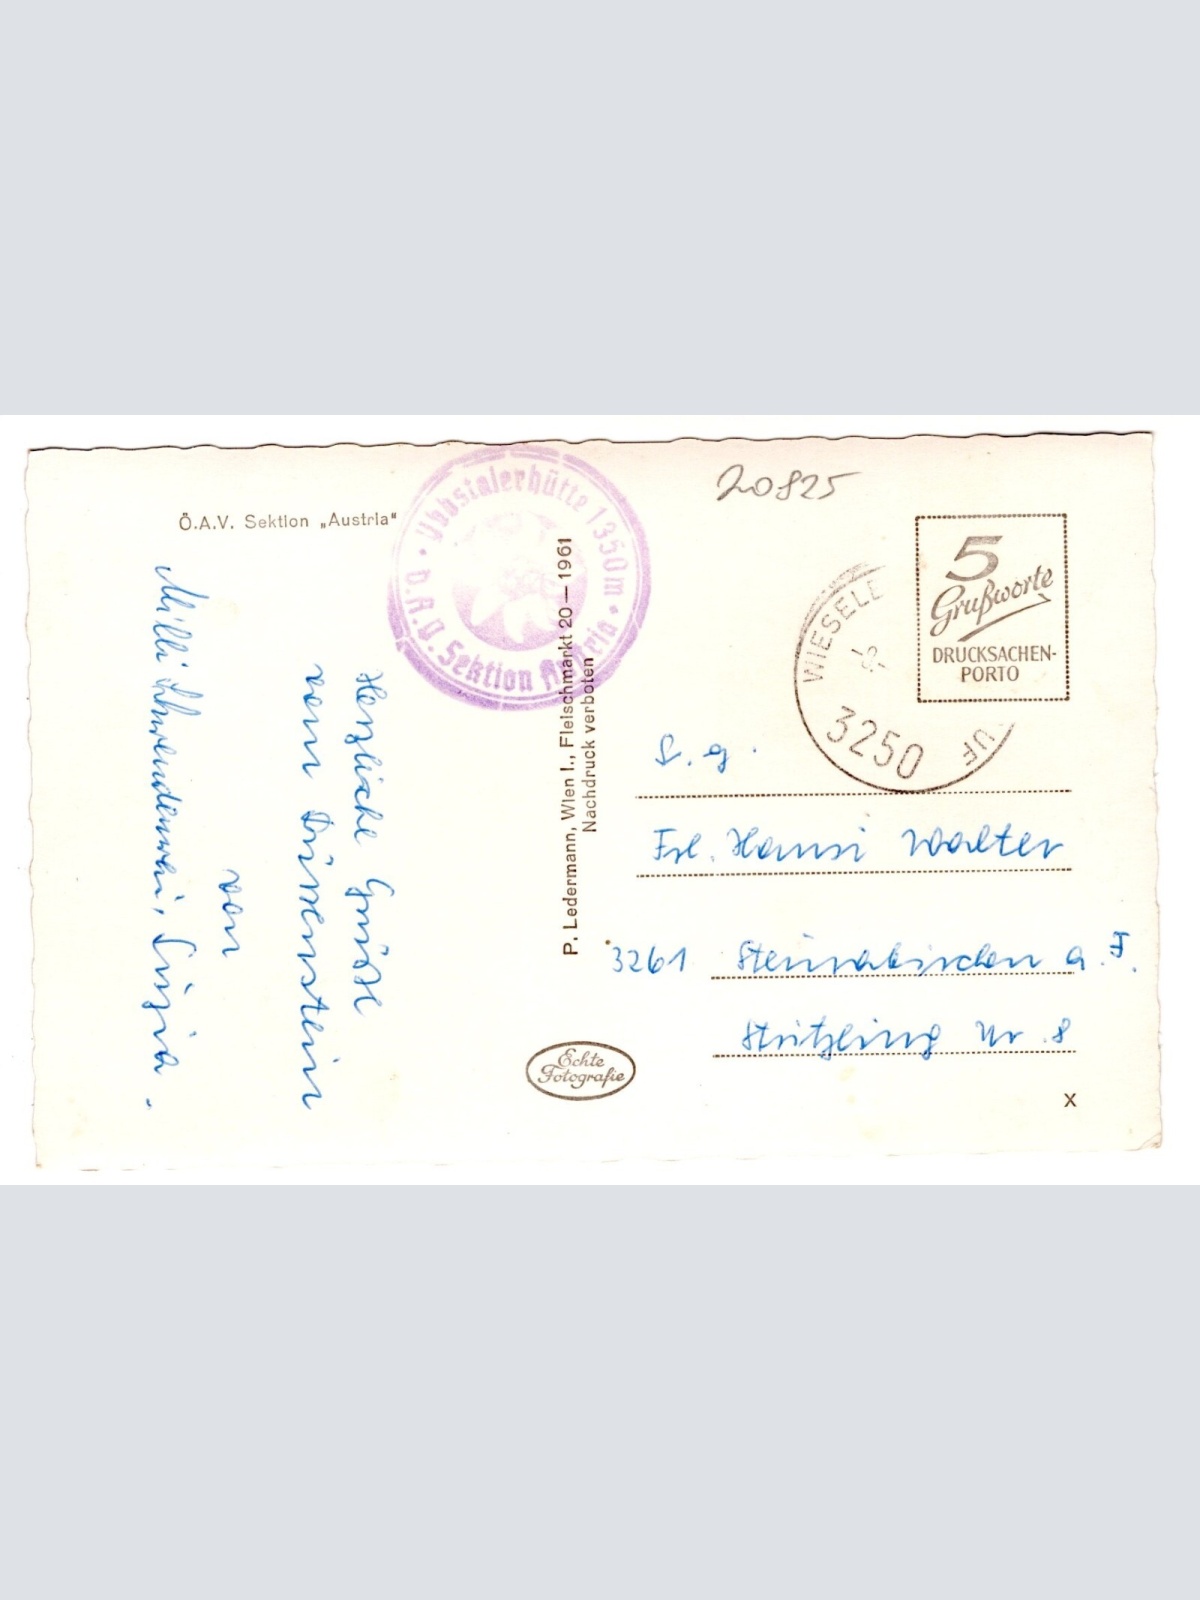 Ö.A.V. Sektion „Austria“
Ybbstalerhütte 1350 m
D.A.V. Sektion Austria
Herzliche Grüsse
vom Dürrenstein
von
Milli
P. Ledermann, Wien I., Fleischmarkt 20 — 1961
Nachdruck verboten
Echte
Fotografie
20825
5
Grußworte
DRUCKSACHEN-
PORTO
WIESELB
3250
S. g.
Frl. Hansi Walter
3261 Steinakirchen a. F.
Stritzling Nr. 8
X